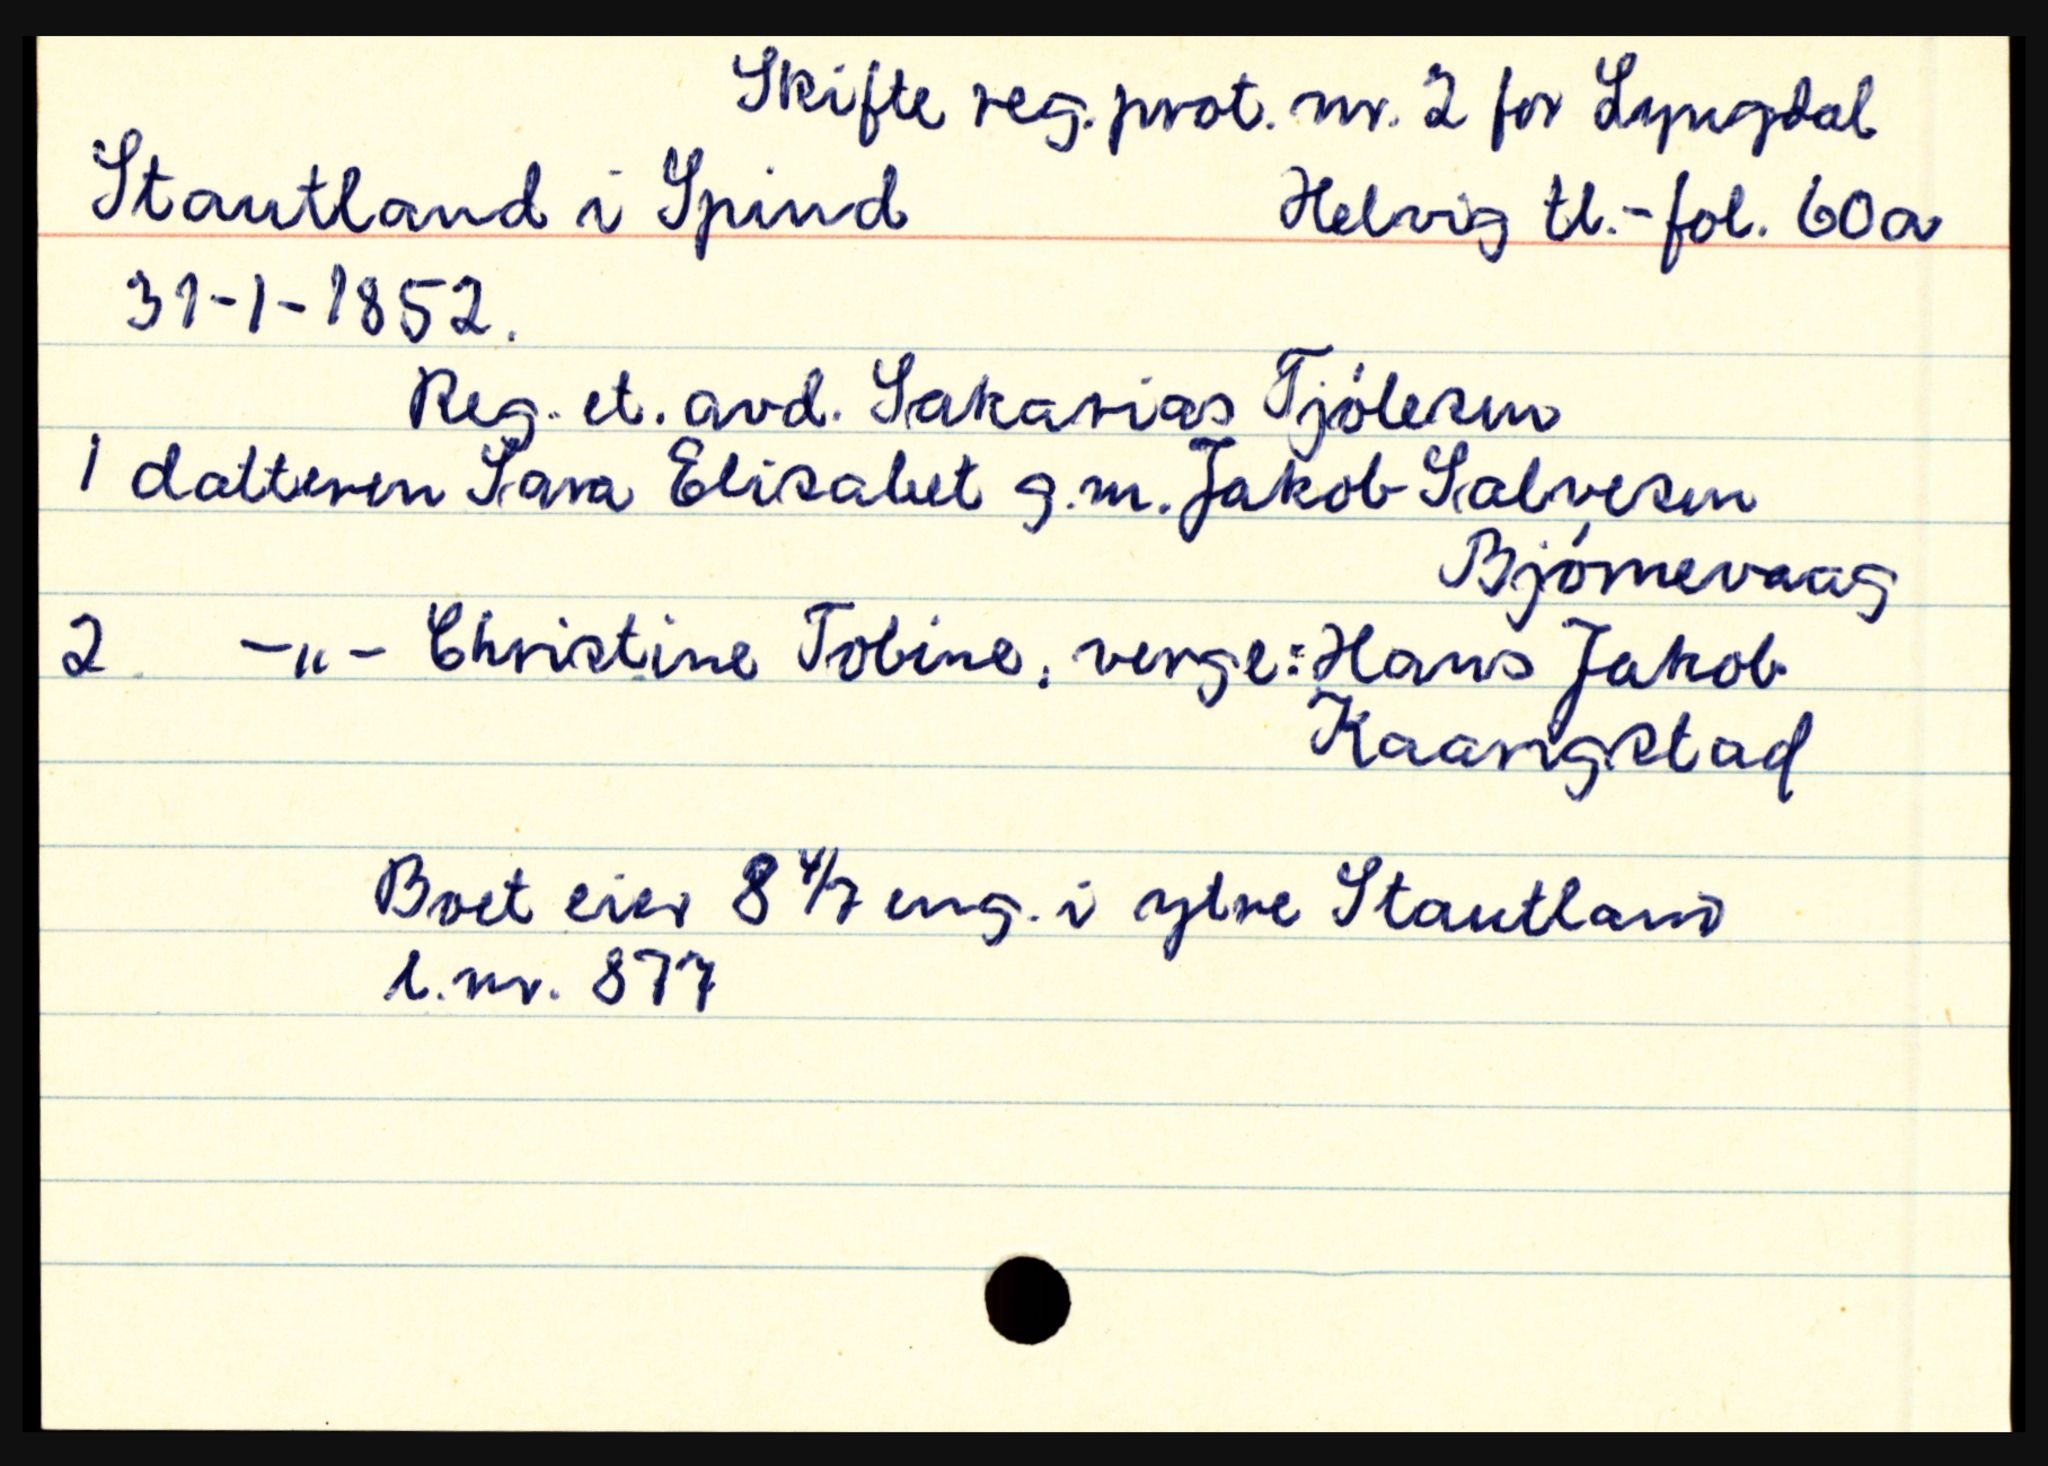 Skifte reg. prot. nr. 2 for Lyngdal
Stautland i Spind Helvig tl.-fol. 60a
31-1-1852.
Reg. et. avd. Sakarias Tjólesen
1 datteren Sara Elisabet g.m. Jakob Salvesen
Bjórnevaag
2 -"- Christine Tobine, verge: Hans Jakob
Kaarigstad
Boet eier 8 4/7 eng. i ytre Stautland
l. nr. 877